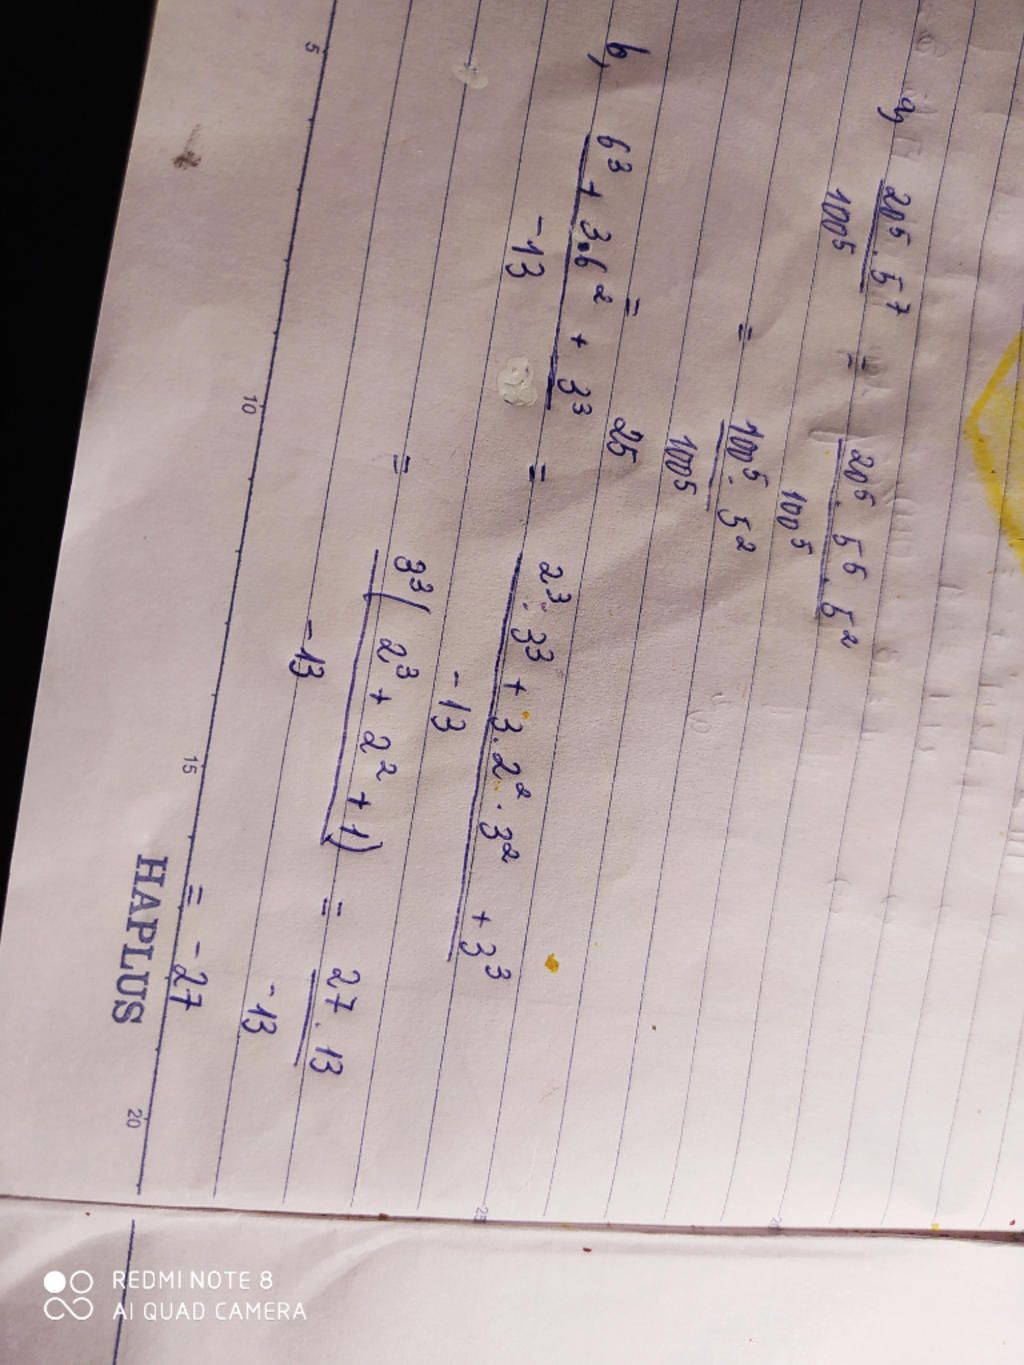 a, 20⁵ . 5⁷ / 100⁵ = 20⁵ . 5⁵ . 5² / 100⁵
= 100⁵ . 5² / 100⁵
= 25
b, 6³ + 3.6² + 3³ / -13 = 2³ . 3³ + 3.2² . 3² + 3³ / -13
= 3³( 2³ + 2² + 1) / -13 = 27 . 13 / -13
= -27
5 10 15 20
HAPLUS
25
REDMI NOTE 8
AI QUAD CAMERA